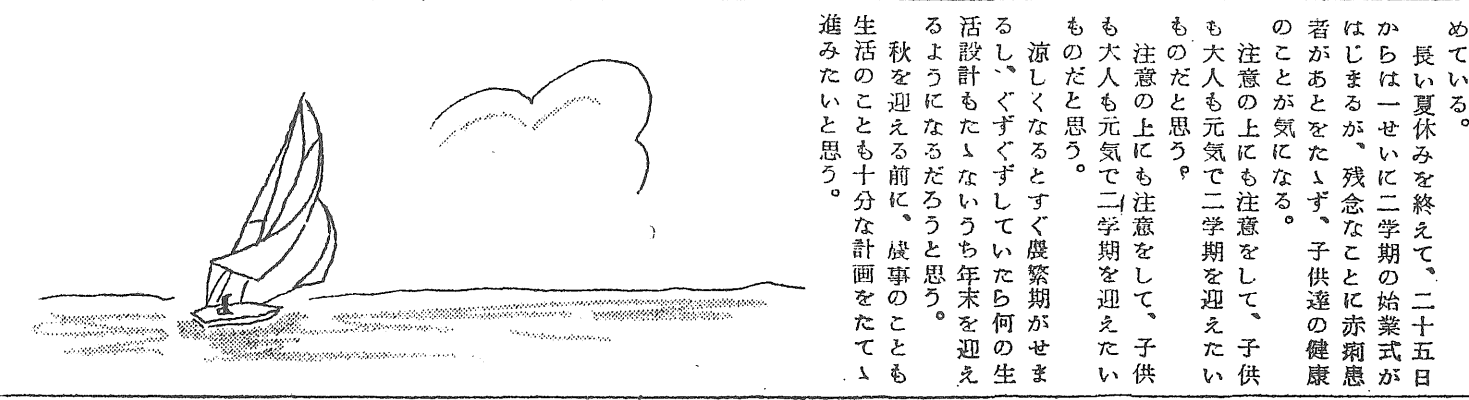 めている。
長い夏休みを終えて、二十五日
からは一せいに二学期の始業式が
はじまるが、残念なことに赤痢患
者があとをたゝず、子供達の健康
のことが気になる。
注意の上にも注意をして、子供
も大人も元気で二学期を迎えたい
ものだと思う。
注意の上にも注意をして、子供
も大人も元気で二学期を迎えたい
ものだと思う。
涼しくなるとすぐ農繁期がせま
るし、ぐずぐずしていたら何の生
活設計もたゝないうち年末を迎え
るようになるだろうと思う。
秋を迎える前に、農事のことも
生活のことも十分な計画をたてゝ
進みたいと思う。